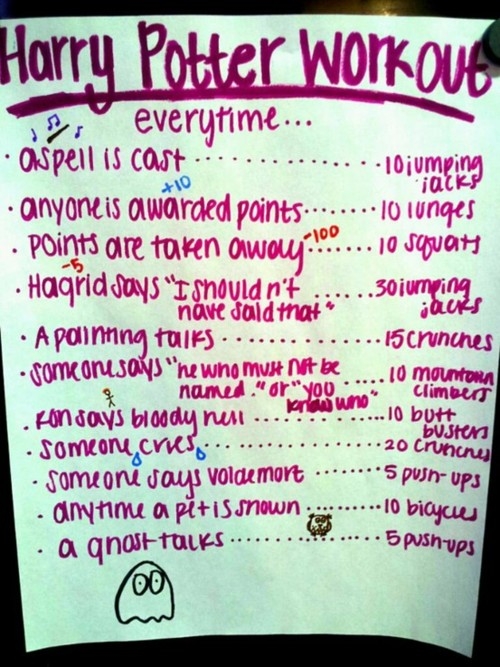 Harry Potter Workout
everytime...
· a spell is cast ............... 10 jumping
jacks
+10
· anyone is awarded points....... 10 lunges
-100
· points are taken away ....... 10 squats
-5
· Hagrid says "I shouldn't ...... 30 jumping
have said that" jacks
· A painting talks ............... 15 crunches
· someone says "he who must not be ..... 10 mountain
named." or "you climbers
know who"
· Ron says bloody hell ............... 10 butt
busters
· someone cries ............... 20 crunches
· someone says voldemort ....... 5 push-ups
· anytime a pet is shown .......... 10 bicycles
· a ghost talks ............... 5 push-ups